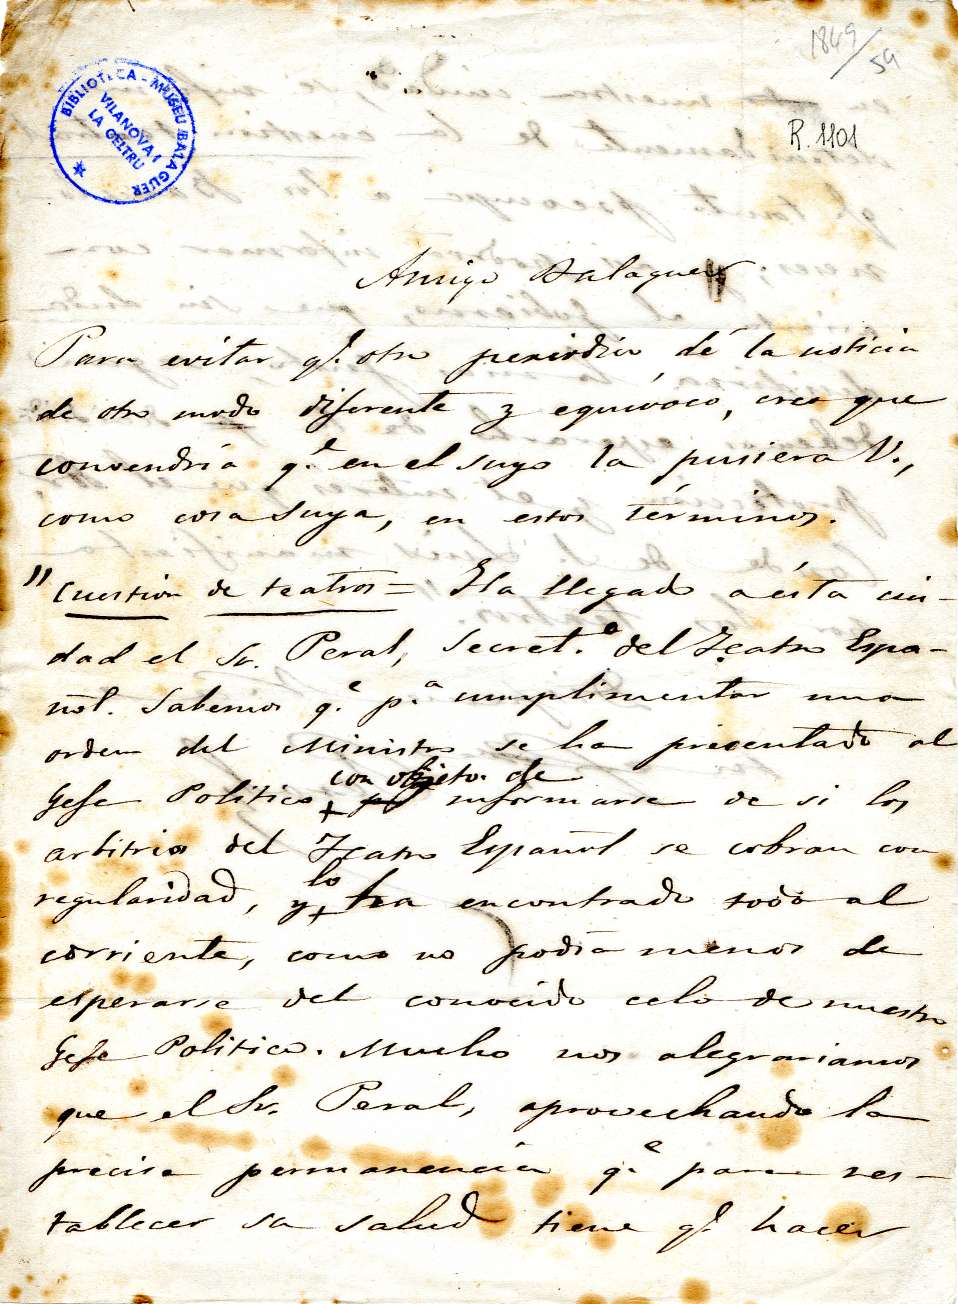 1849/54
R. 1101
BIBLIOTECA - MUSEU BALAGUER
VILANOVA I
LA GELTRU
Amigo Balaguer
Para evitar q.e otro periodico dé la noticia
de otro modo diferente y equivoco, creo que
convendria q.e en el suyo la pusiera V.,
como cosa suya, en estos términos.
"Cuestion de teatros = Ha llegado a ésta ciu-
dad el Sr. Peral, Secret.o del Teatro Espa-
ñol. Sabemos q.e p.a cumplimentar una
orden del Ministro se ha presentado al
Gefe Politico con objeto de informarse de si los
arbitrios del Teatro Español se cobran con
regularidad, y lo ha encontrado todo al
corriente, como no podia menos de
esperarse del conocido celo de nuestro
Gefe Politico. Mucho nos alegrariamos
que el Sr. Peral, aprovechando la
precisa permanencia q.e para res-
tablecer su salud tiene q.e hacer